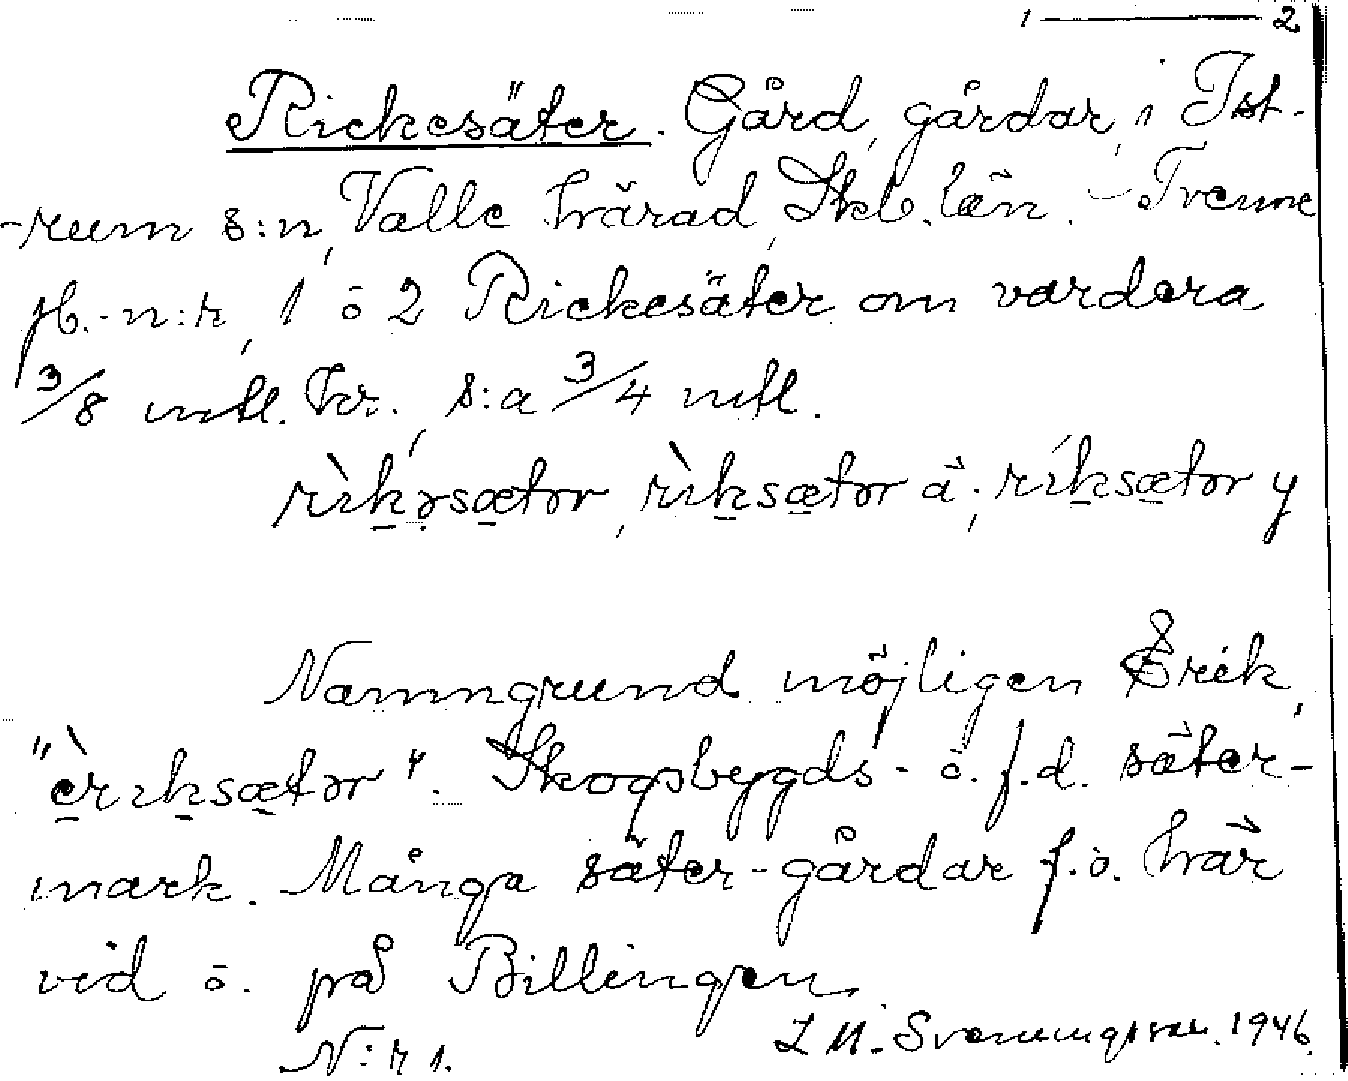 1 — 2
Rickesäter. Gård, gårdar, i Ist-
-rum s:n, Valle härad, Skb. län. – Tvenne
jb.-n:r, 1 o 2 Rickesäter om vardera
3/8 mtl. Kr., s:a 3/4 mtl.
rìkəsætər, rìksætər ä.; ríksætər y
Namngrund möjligen Erik,
"èriksætər". Skogsbygds- o. f.d. säter-
mark. Många säter-gårdar f.ö. här
vid o. på Billingen.
N:r 1. L M. Svenungsson. 1946.